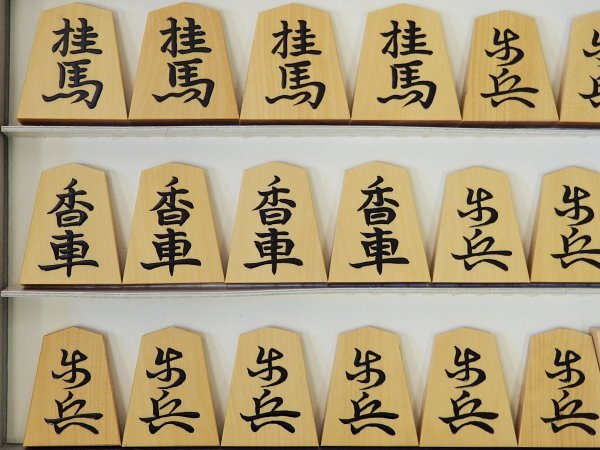 桂馬 桂馬 桂馬 桂馬 歩兵 歩兵
香車 香車 香車 香車 歩兵 歩兵
歩兵 歩兵 歩兵 歩兵 歩兵 歩兵